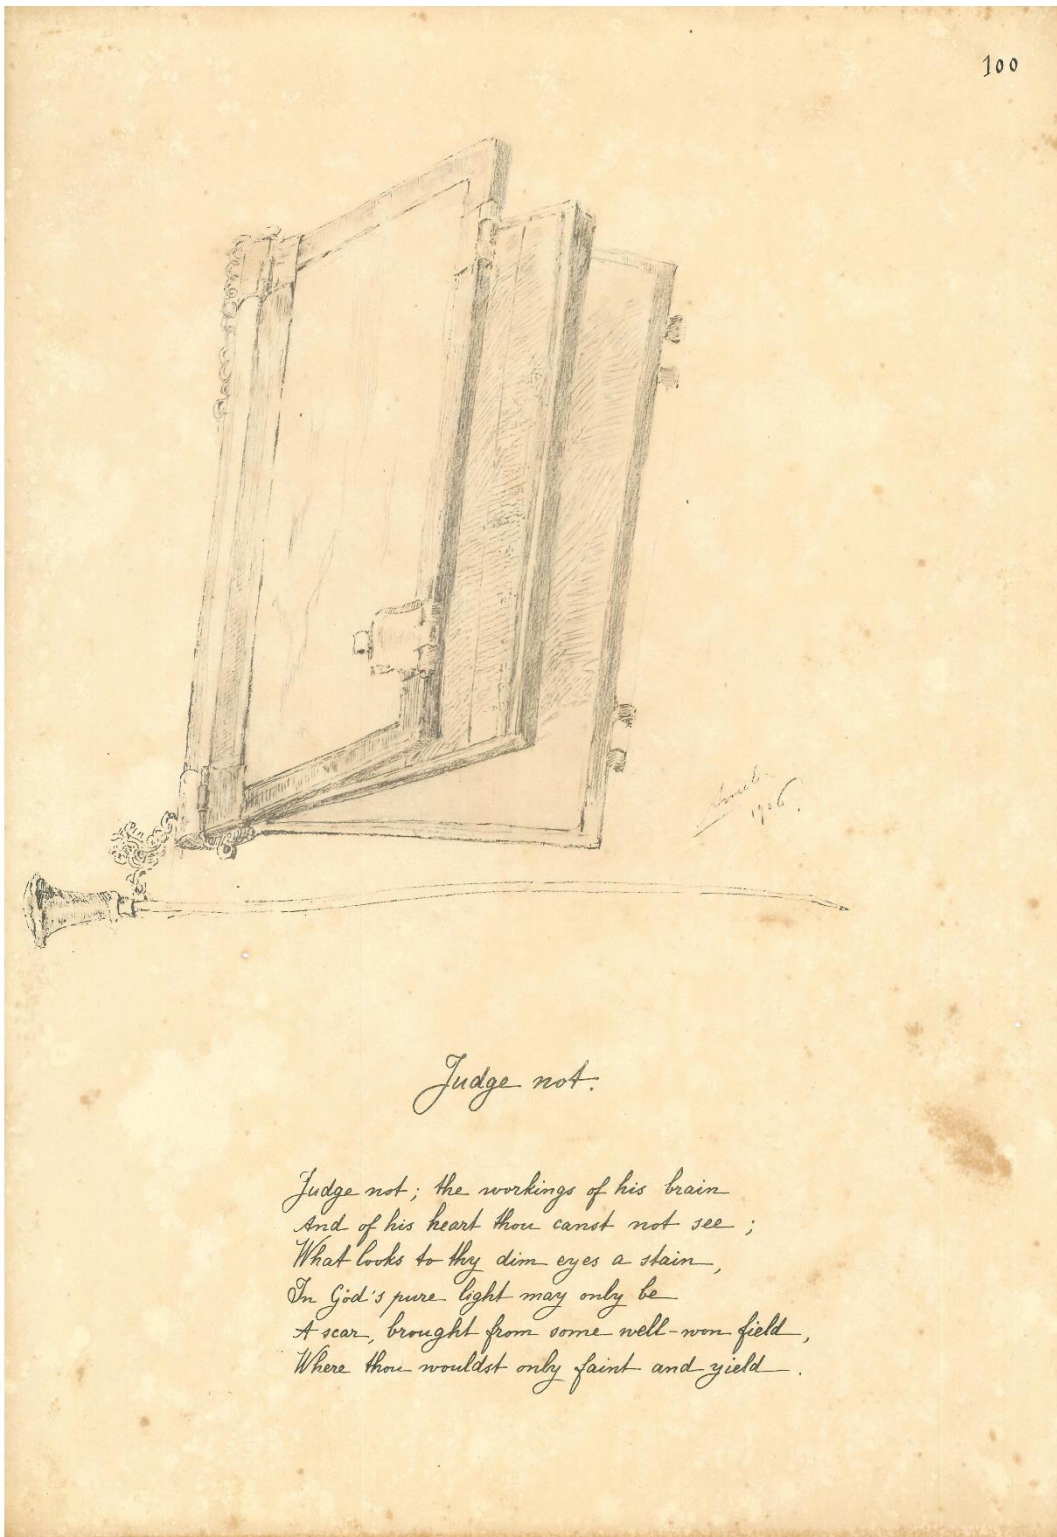 100
1906.
Judge not.
Judge not; the workings of his brain
And of his heart thou canst not see;
What looks to thy dim eyes a stain,
In God's pure light may only be
A scar, brought from some well-won field,
Where thou wouldst only faint and yield.